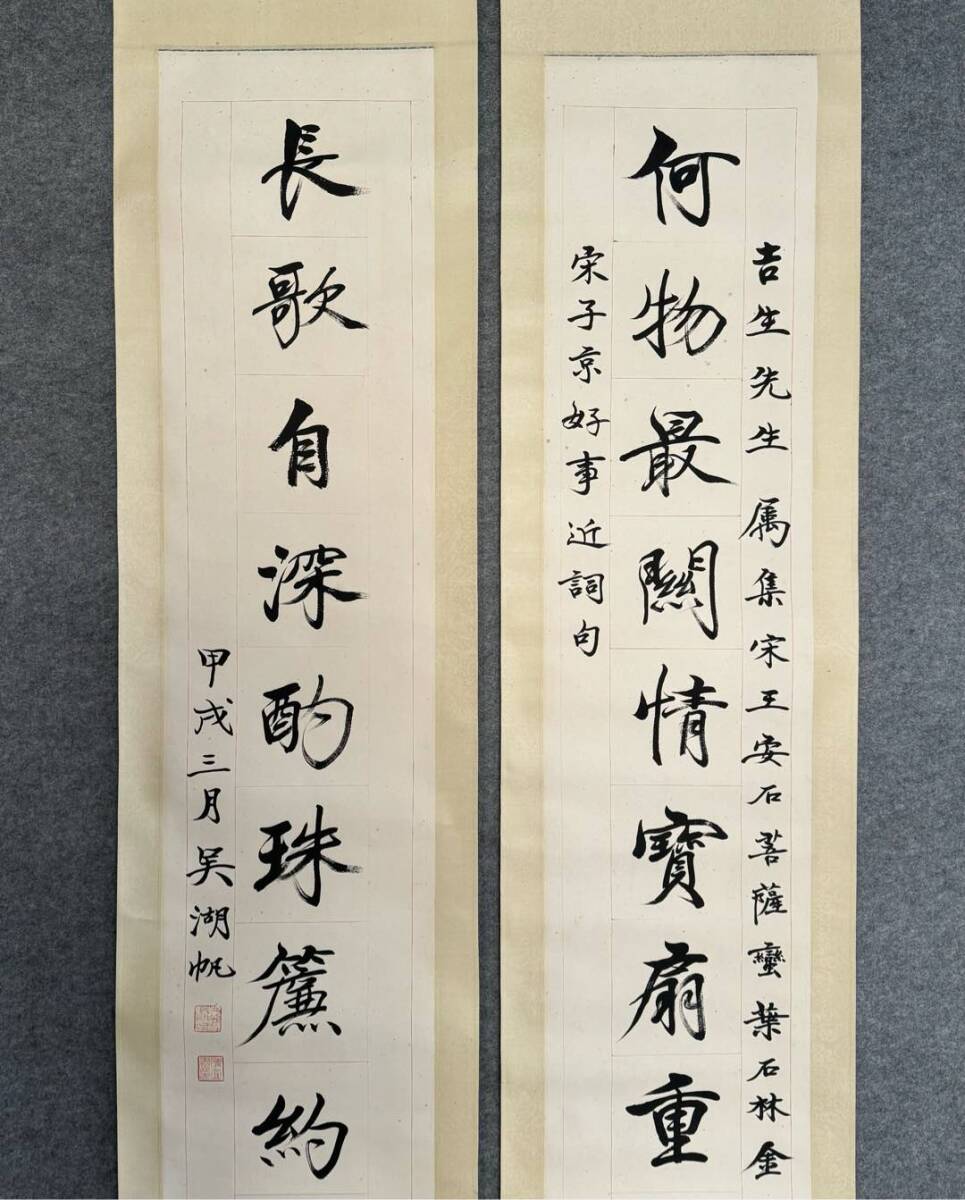 吉生先生属集宋王安石菩薩蠻葉石林金
何物最關情寶扇重
宋子京好事近詞句
長歌自深酌珠簾約
甲戌三月吳湖帆